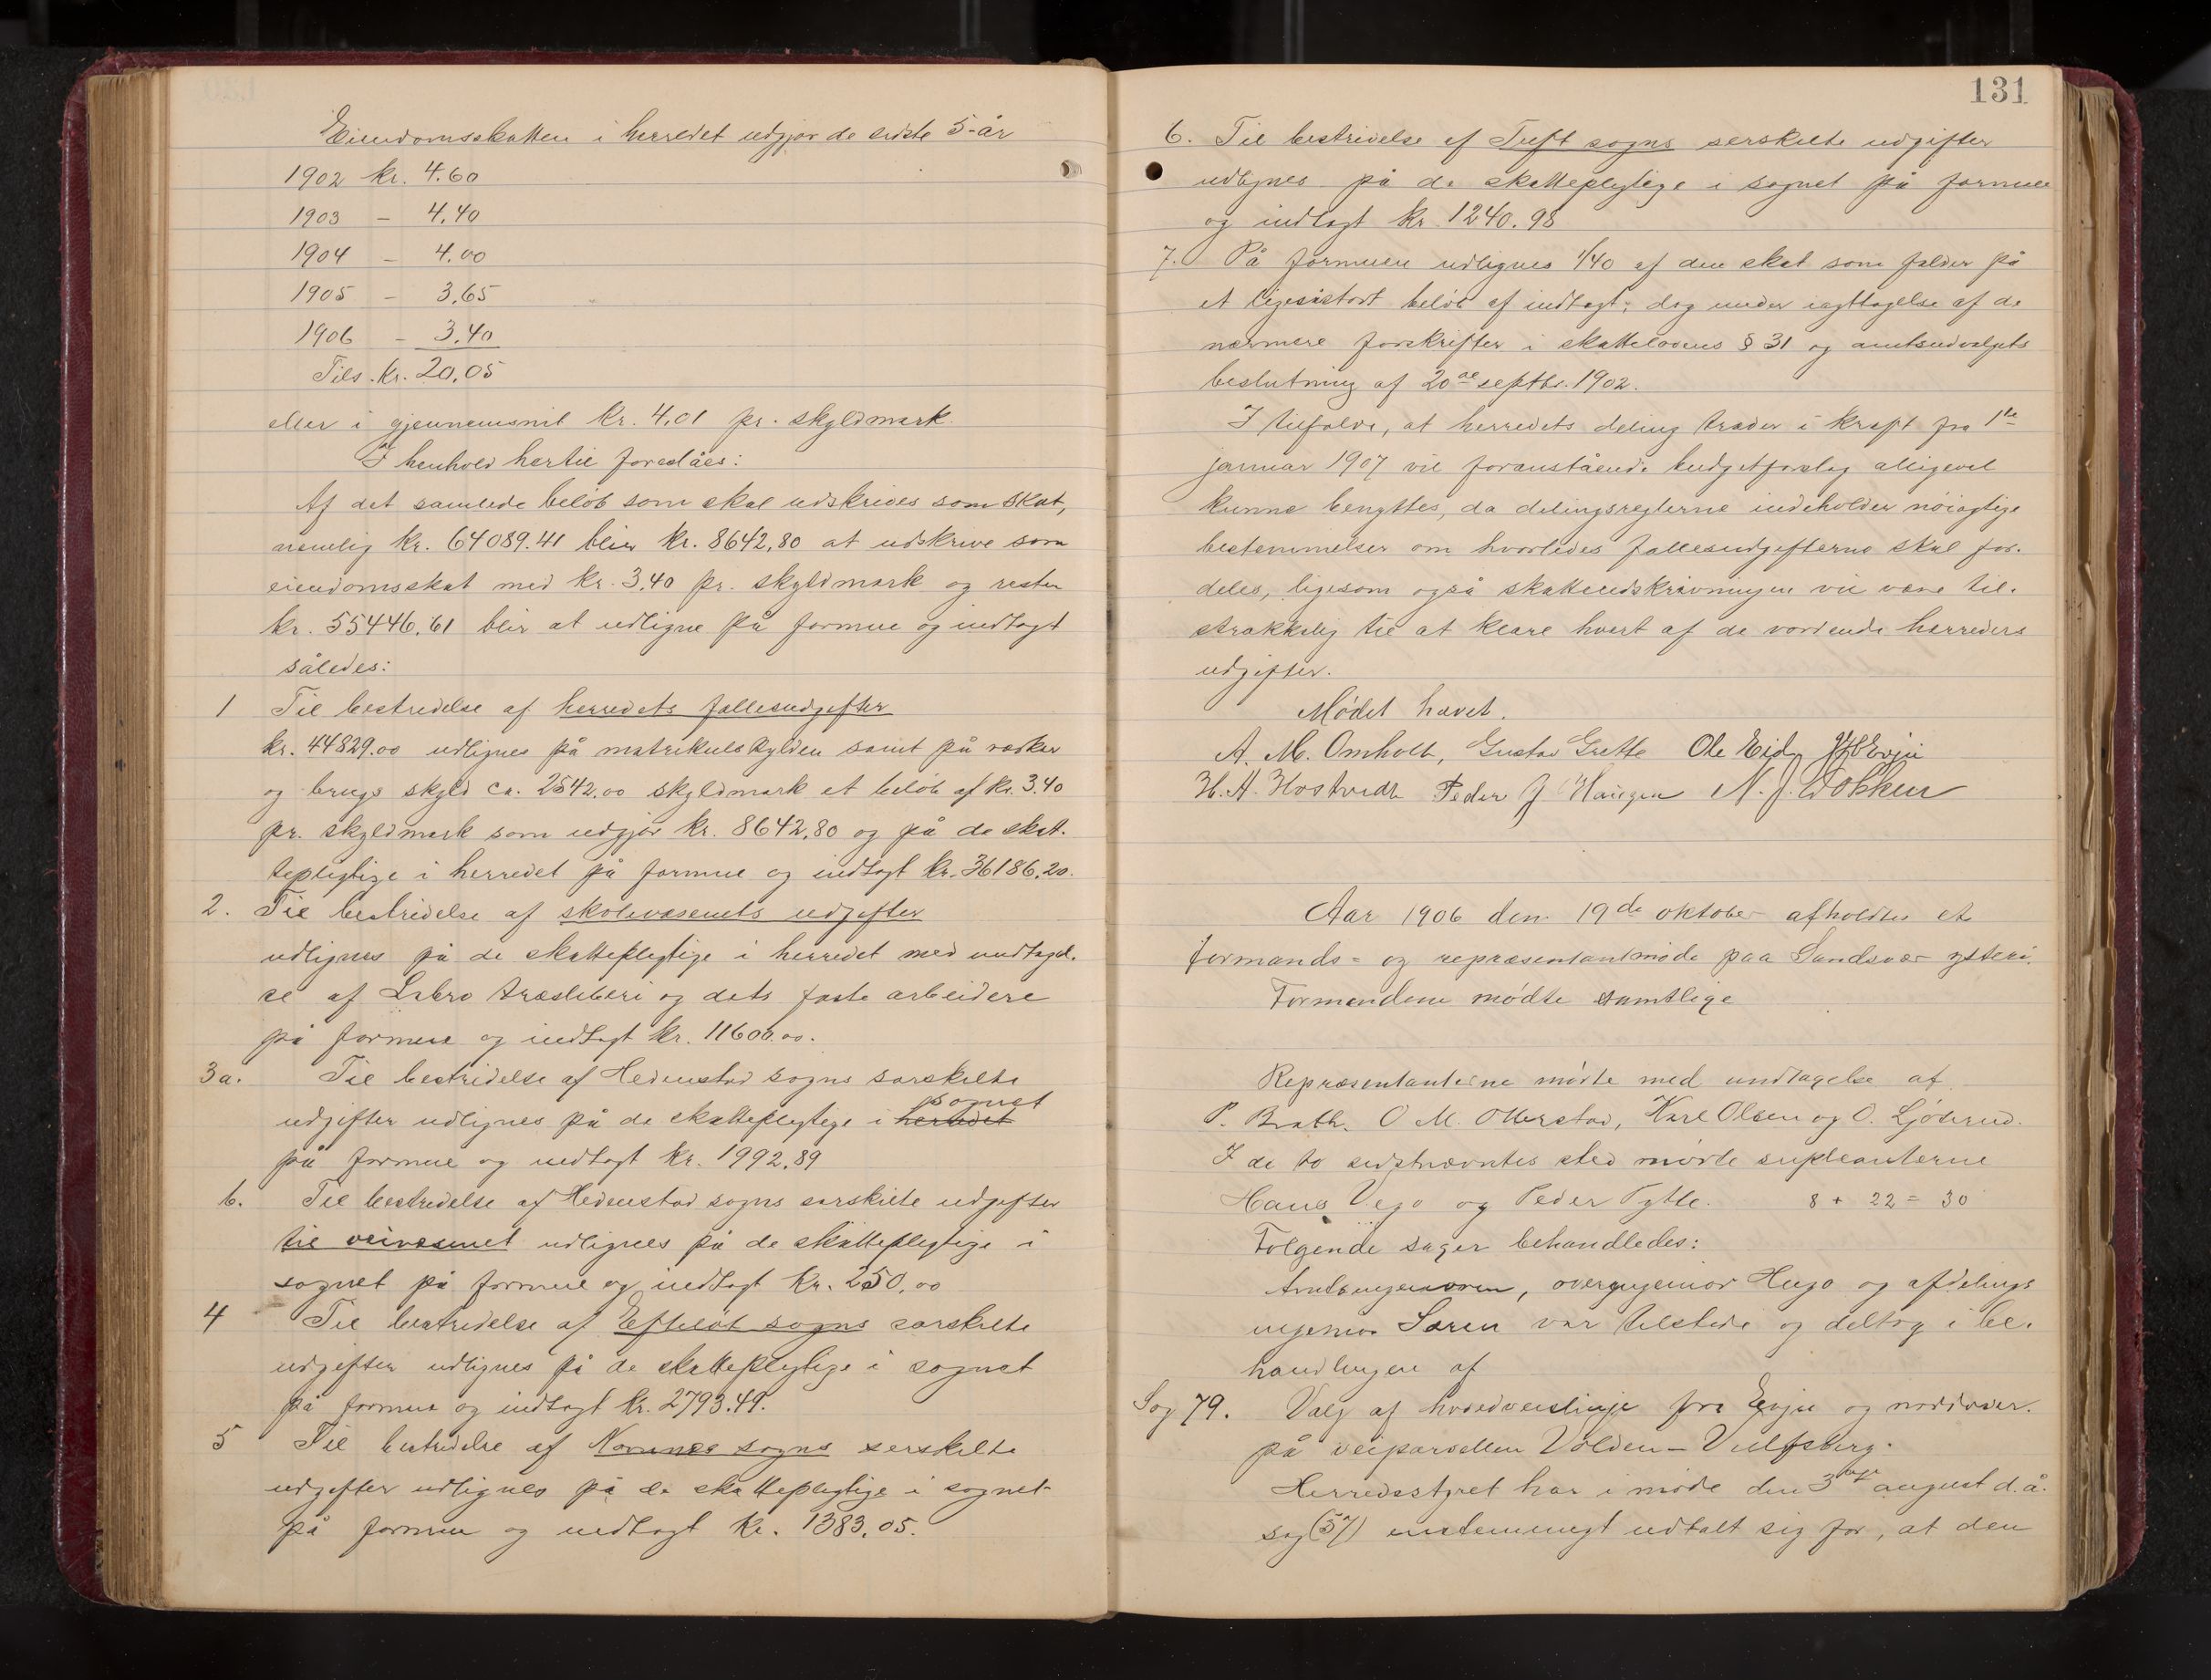 Eiendomsskatten i herredet udgjør de sidste 5-år
1902 kr. 4.60
1903 - 4,40
1904 - 4.00
1905 - 3,65
1906 - 3,40
Tils. kr. 20,05
eller i gjennemsnit kr. 4,01 pr. skyldmark.
I henhold hertil foreslåes:
Af det samlede beløb som skal udskrives som skat,
nemlig kr. 64089.41 blir kr. 8642,80 at udskrive som
eiendomsskat med kr. 3,40 pr. skyldmark og resten
kr. 55446,61 blir at udligne på formue og indtægt
således:
1 Til bestridelse af herredets fællesudgifter
kr. 44829.00 udlignes på matrikulskylden samt på værker
og brugs skyld ca. 2542,00 skyldmark et beløb af kr. 3.40
pr. skyldmark som udgjør kr. 8642,80 og på de skat-
tepligtige i herredet på formue og indtægt kr. 36186,20.
2. Til bestridelse af skolevæsenets udgifter
udlignes på de skattepligtige i herredet med undtagel-
se af Labro træsliberi og dets faste arbeidere
på formue og indtægt kr. 11600.00.
3a. Til bestridelse af Hedenstad sogns særskilte
sognet
udgifter udlignes på de skattepligtige i herredet
på formue og indtægt kr. 1992,89
b. Til bestridelse af Hedenstad sogns særskilte udgifter
til veivæsenet udlignes på de skattepligtige i
sognet på formue og indtægt kr. 250,00
4 Til bestridelse af Efteløt sogns særskilte
udgifter udlignes på de skattepligtige i sognet
på formue og indtægt kr. 2793.49.
5 Til bestridelse af Komnes sogns særskilte
udgifter udlignes på de skattepligtige i sognet
på formue og indtægt kr. 1383,05.
131
6. Til bestridelse af Tuft sogns særskilte udgifter
udlignes på de skattepligtige i sognet på formue
og indtægt kr. 1240.98
7. På formuen udlignes 1/40 af den skat som falder på
et ligesåstort beløb af indtægt, dog under iagttagelse af de
nærmere forskrifter i skattelovens § 31 og amtsudvalgets
beslutning af 20de septbr. 1902.
I tilfælde, at herredets deling træder i kraft fra 1te
januar 1907 vil foranstående budgetforslag alligevel
kunne benyttes, da delingsreglerne indeholder nøiagtige
bestemmelser om hvorledes fællesudgifterne skal for-
deles, ligesom også skatteudskrivningen vil være til-
strækkelig til at klare hvert af de vordende herreders
udgifter.
Mødet hævet.
A. M. Omholt, Gustav Grette Ole Eid Evju
H. A. Hostvedt Peder J Haugen N. J. Dokken
Aar 1906 den 19de oktober afholdtes et
formands- og repræsentantmøde paa Sandsvær ysteri.
Formændene mødte samtlige
Repræsentanterne mødte med undtagelse af
P. Bratb. O M. Otterstad, Karl Olsen og O. Ljøterud.
I de to sidstnævntes sted mødte supleanterne
Hans Vego og Peder Tytte. 8 + 22 = 30
Følgende sager behandledes:
Amtsingeniøren, overingeniør Hugo og afdelings
ingeniør Søren var tilstede og deltog i be-
handlingen af
Sag 79. Valg af hovedveislinje fra Evju og nordover
på veiparsellen Volden - Vulfsberg.
Herredsstyret har i møde den 3die august d. å.
sag (57) enstemmigt udtalt sig for, at den